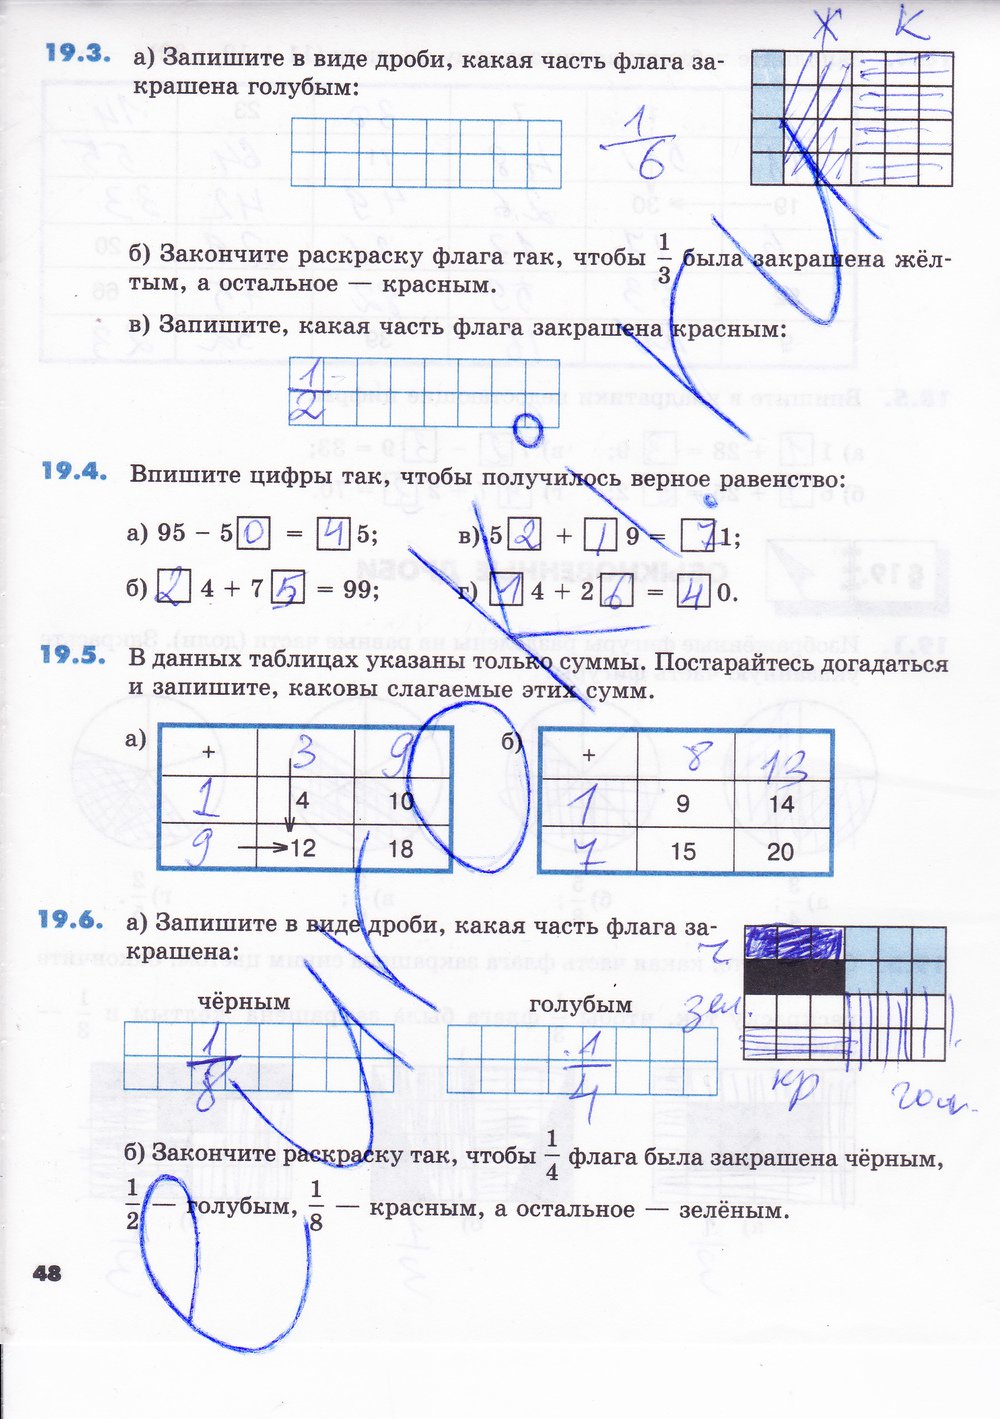 Ж К
19.3. а) Запишите в виде дроби, какая часть флага за-
крашена голубым:
1/6
б) Закончите раскраску флага так, чтобы 1/3 была закрашена жёл-
тым, а остальное — красным.
в) Запишите, какая часть флага закрашена красным:
1/2
19.4. Впишите цифры так, чтобы получилось верное равенство:
а) 95 – 5 0 = 4 5; в) 5 2 + 1 9 = 7 1;
б) 2 4 + 7 5 = 99; г) 1 4 + 2 6 = 4 0.
19.5. В данных таблицах указаны только суммы. Постарайтесь догадаться
и запишите, каковы слагаемые этих сумм.
а) б)
+ 3 9 + 8 13
1 4 10 1 9 14
9 12 18 7 15 20
19.6. а) Запишите в виде дроби, какая часть флага за-
крашена:
ч
чёрным голубым зел.
1/8 1/4
кр гол.
б) Закончите раскраску так, чтобы 1/4 флага была закрашена чёрным,
1/2 — голубым, 1/8 — красным, а остальное — зелёным.
48